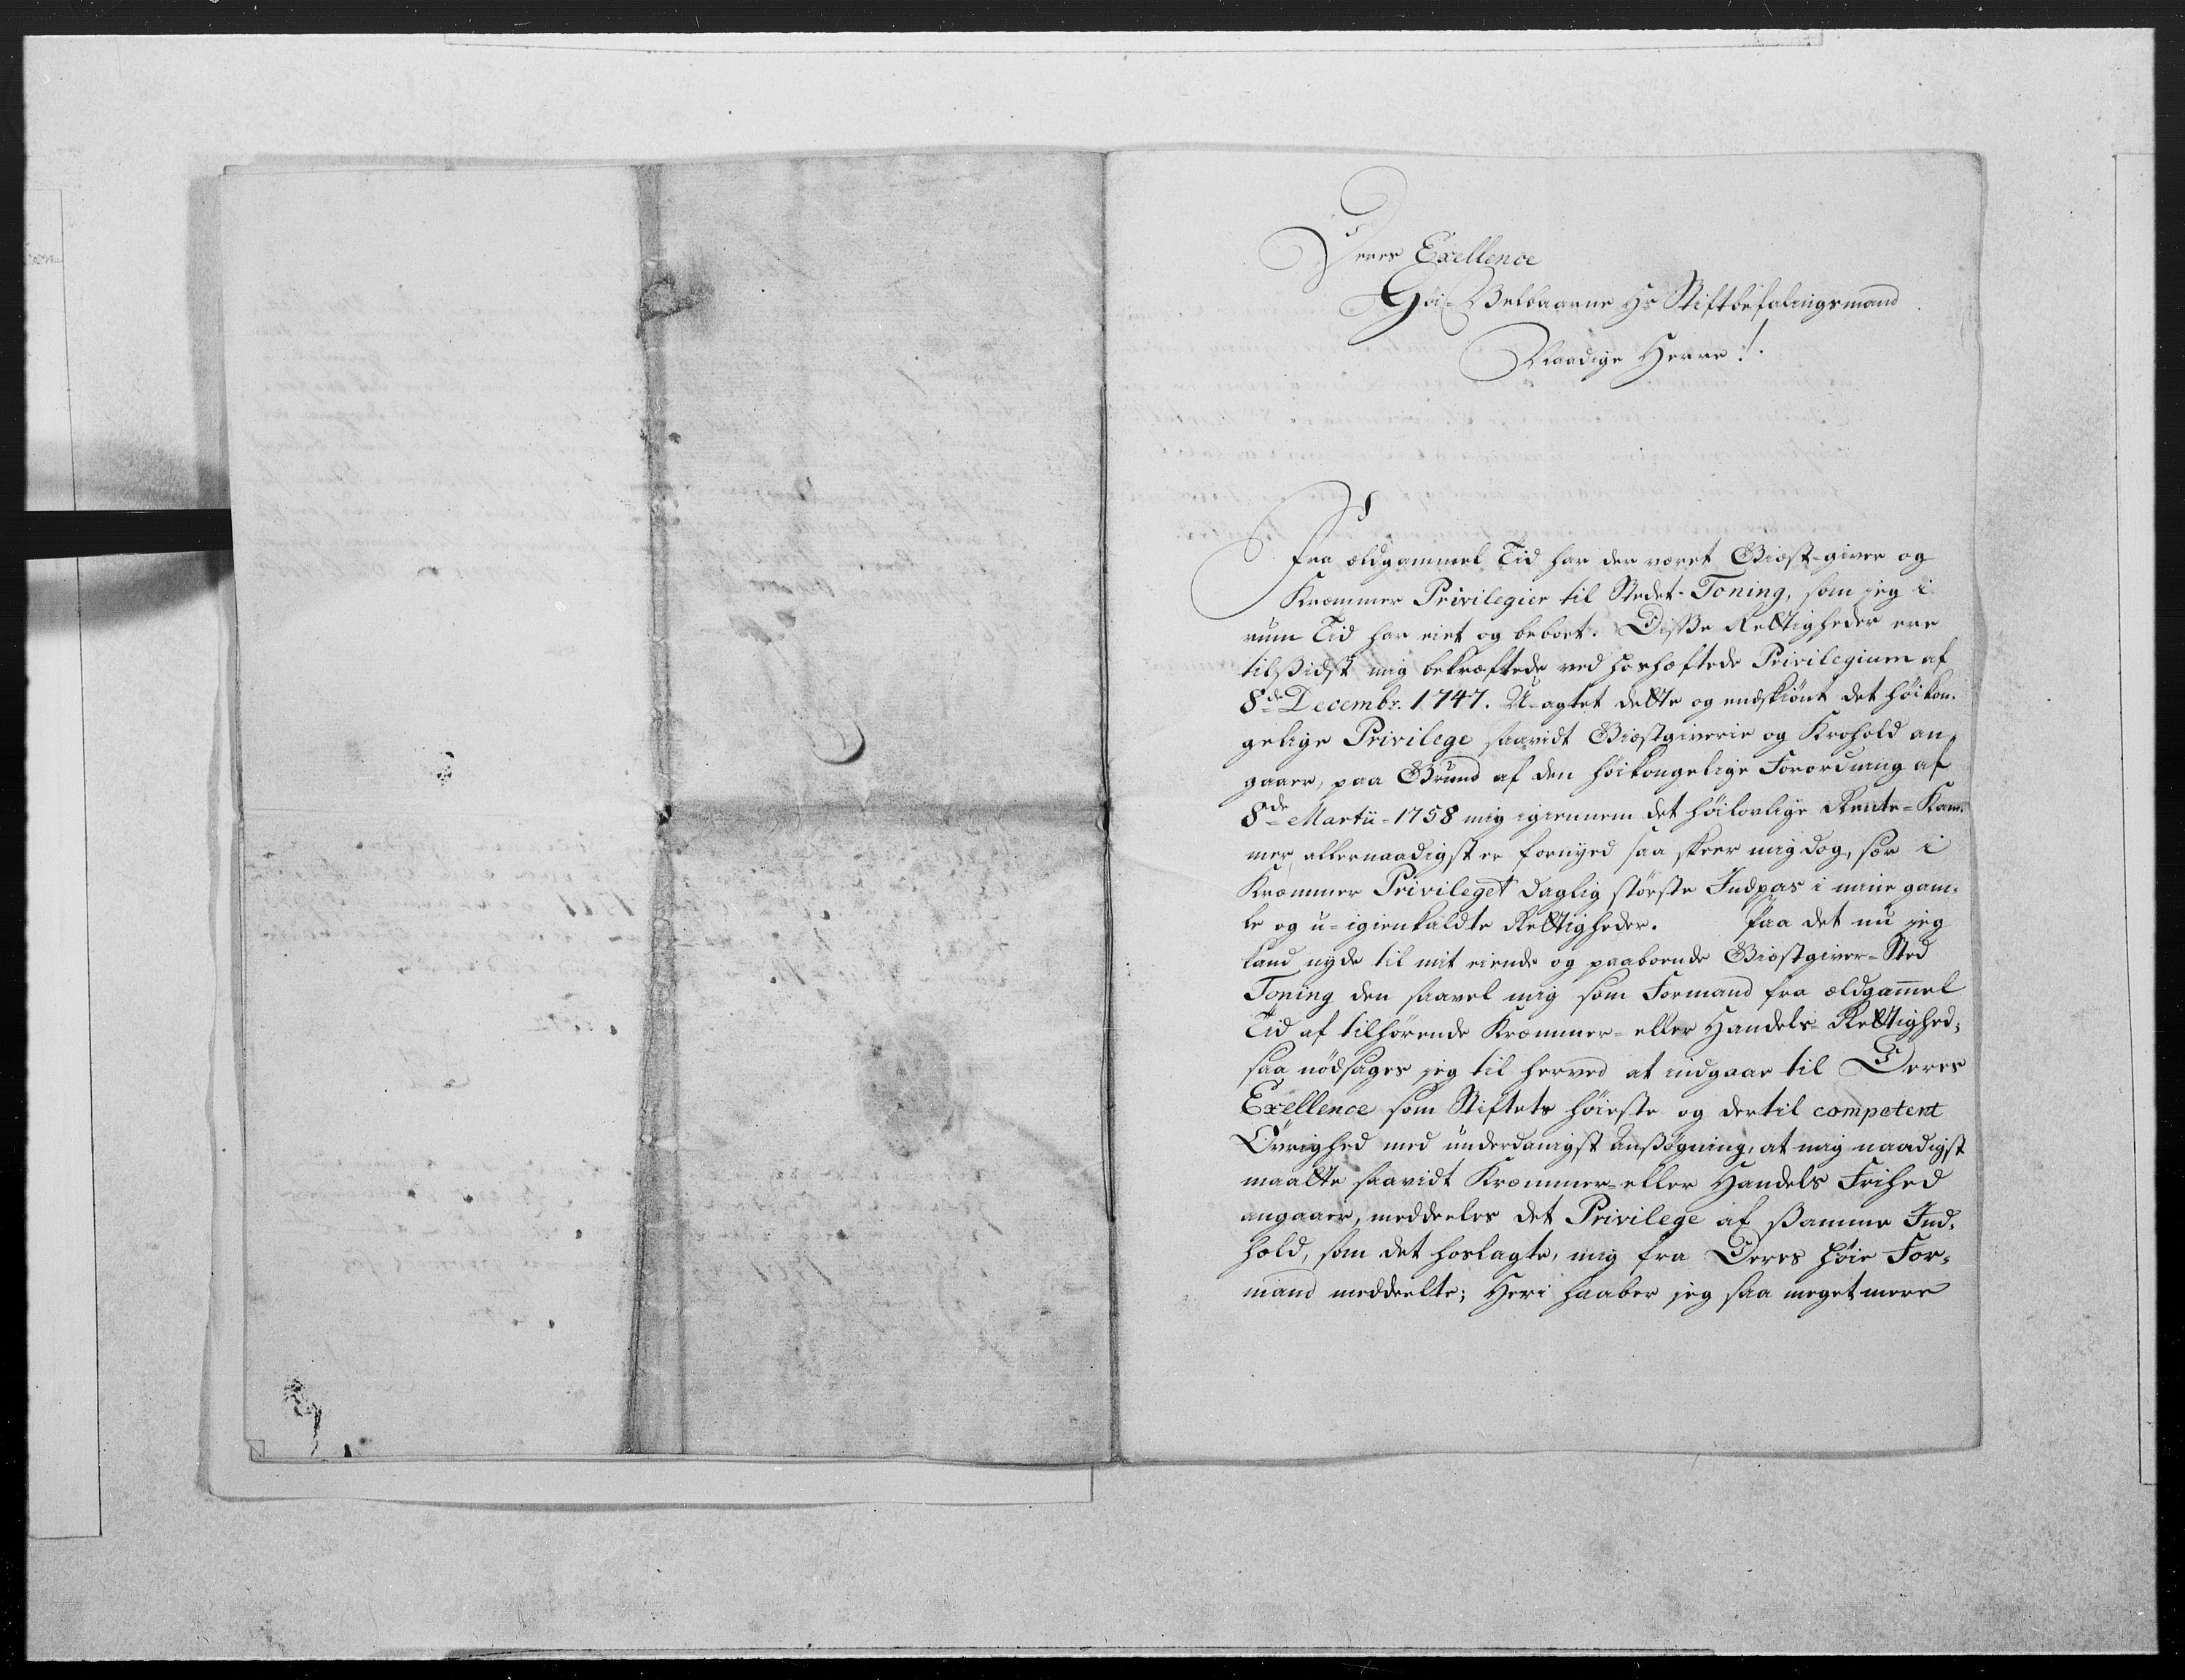 Deres Exellence
Höi-Velbaarne Hr Stiftbefalingsmand
Naadige Herre!
Fra ældgammel Tid har der været Giæst-giver og
Kræmmer Privilegier til Stedet Toning, som jeg i
rum Tid har eiet og beboet. Disse Rettigheder ere
tilsidst mig bekræftede ved hoshæftede Privilegium af
8de Decembr. 1747. U-agtet dette og endskiönt det höikon-
gelige Privilege saavidt Giæstgiverie og Krohold an-
gaaer, paa Grund af den höikongelige Forordning af
8de Martii 1758 mig igiennem det höilovlige Rente-Kam-
mer allernaadigst er fornyed saa skeer mig dog, for i
Kræmmer Privileget daglig störste Indpas i mine gam-
le og u-igienkaldte Rettigheder. Paa det nu jeg
kand nyde til mit eiende og paaboende Giæstgiver-Sted
Toning den saavel mig som Formand fra ældgammel
Tid af tilhörende Kræmmer- eller Handels-Rettighed;
saa nödsages jeg til herved at indgaae til Deres
Exellence som Stiftets höieste og dertil competent
Övrighed med underdanigst Ansögning, at mig naadigst
maatte saavidt Kræmmer- eller Handels Frihed
angaaer, meddeeles det Privilege af samme Ind-
hold, som det hoslagte, mig fra Deres höie For-
mand meddeelte; Heri haaber jeg saa meget mere